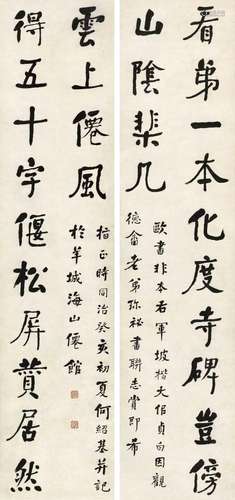 看第一本化度寺碑豈傍
山陰棐几
得五十字偃松屏贊居然
雲上僊風
歐書非本右軍坡楷大佀貞白因觀
德畬老弟珎祕書聯志賞即希
指正時同治癸亥初夏何紹基并記
於羊城海山僊館